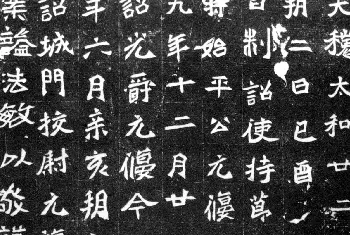 大魏太和廿二
朔二日己酉
日制詔使持節
將始平公元偃
九年十二月廿
詔光爵元偃今
年六月辛亥朔
詔城門校尉元
謚法敏以敬